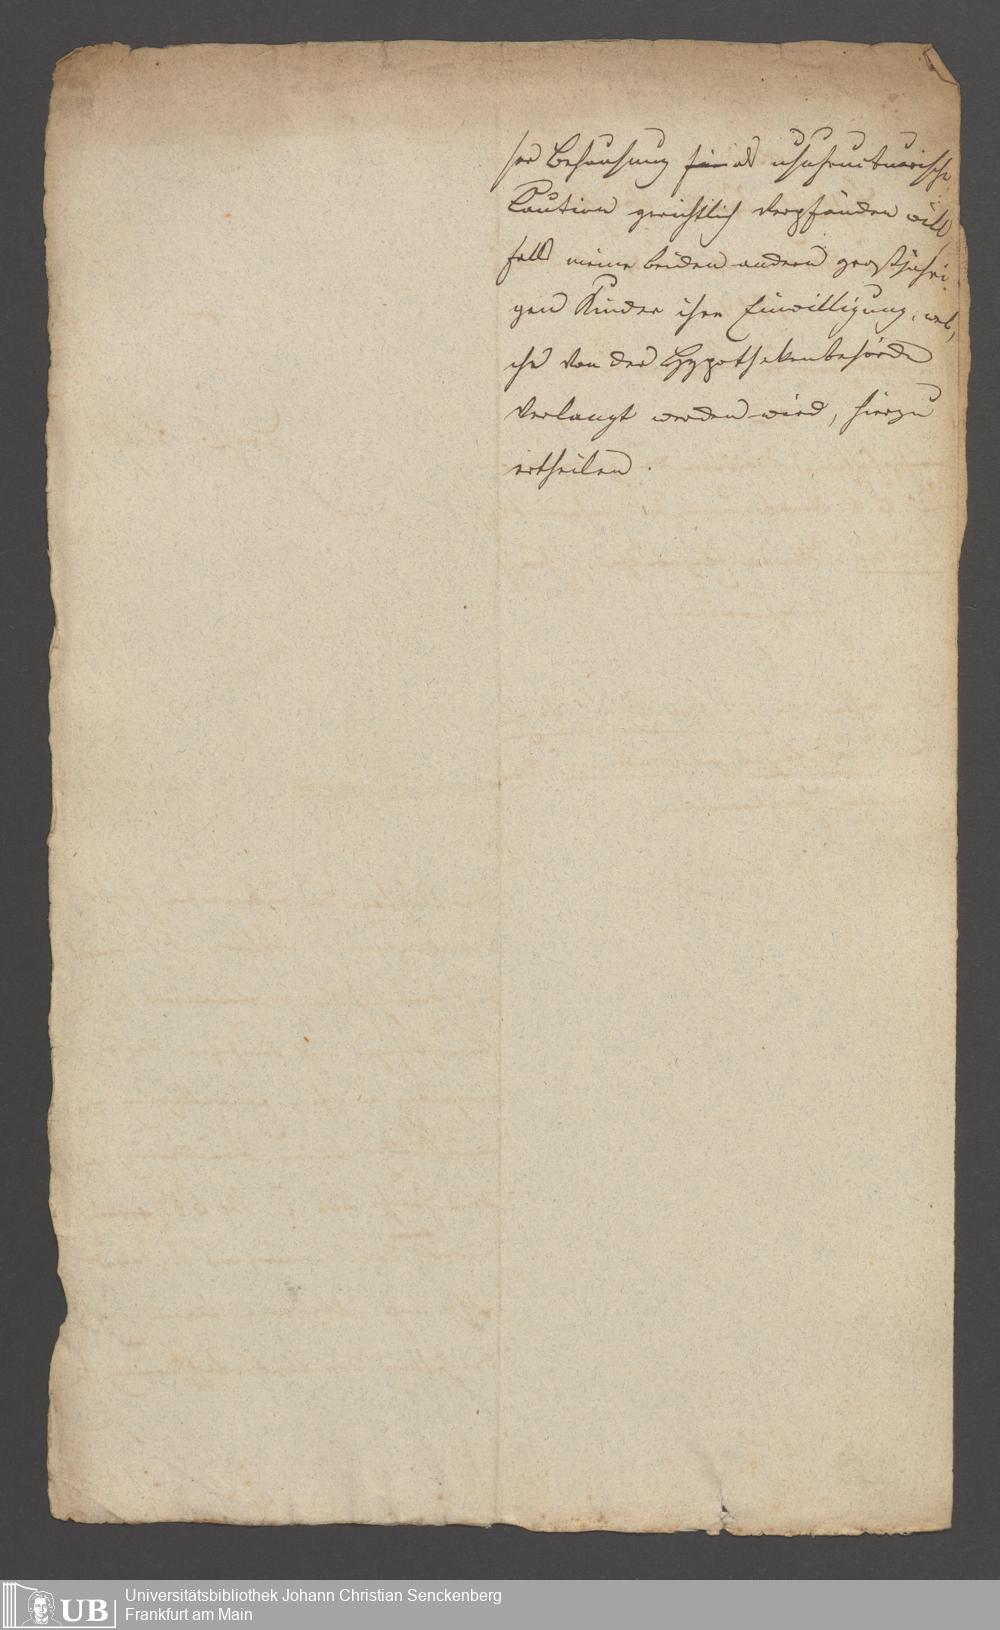 ser Behausung für als usufructuarische
Caution gerichtlich verpfänden will,
falls meine beiden andern großjähri-
gen Kinder ihre Einwilligung, wel,
che von der Hypothekenbehörde
verlangt werden wird, hierzu
ertheilen.
UB
Universitätsbibliothek Johann Christian Senckenberg
Frankfurt am Main